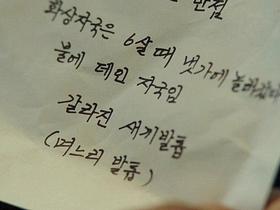 반점
화상자국은 6살때 냇가에 놀러갔다
불에 데인 자국임
갈라진 새끼발톱
(며느리 발톱)